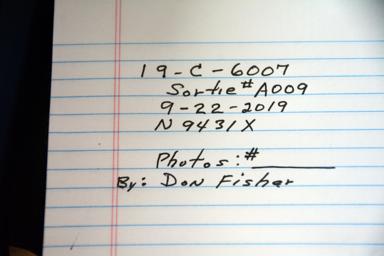 19-C-6007
Sortie # A009
9-22-2019
N9431X
Photos: #______
By: Don Fisher